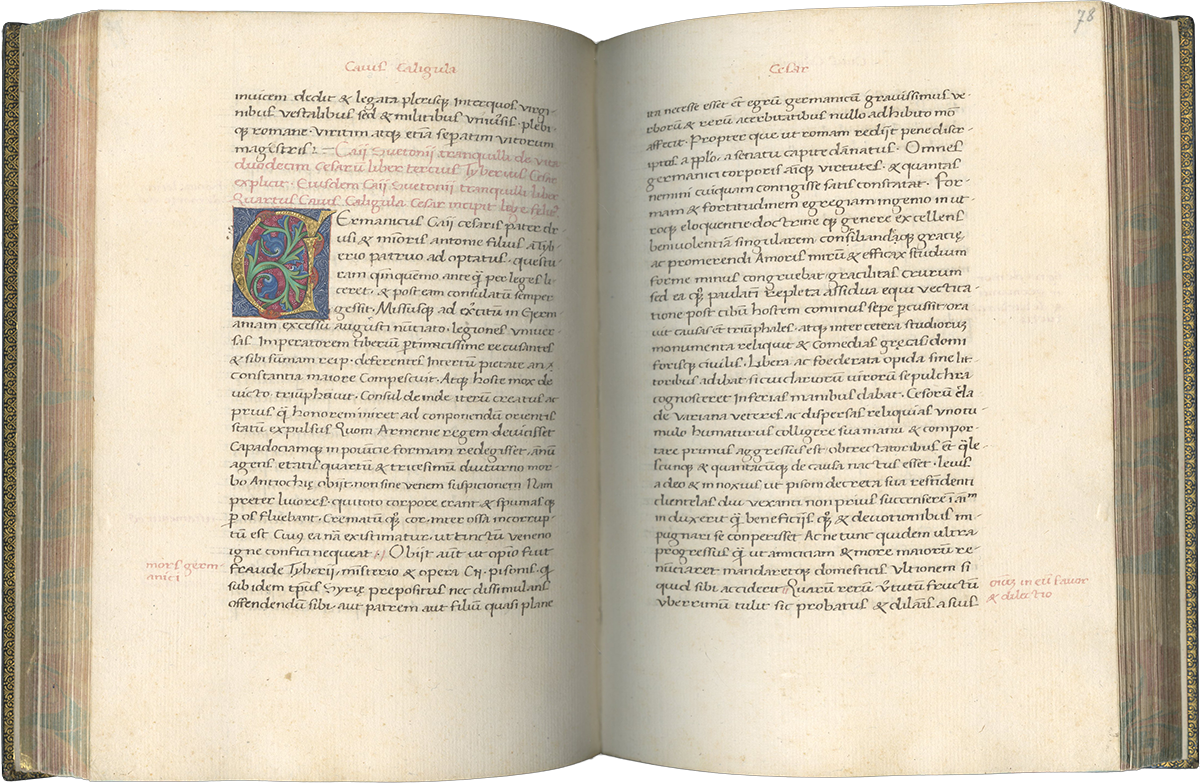 Caius Caligula
inuicem dedit & legata plerisq; inter quos virgi-
nibus vestalibus sed & militibus vniuersis · plebi-
q; romane · viritim atq; etiā sepatim vicorum
magistris : —Caii Suetonii tranquilli de vita
duodecim Cesarū liber tercius Tyberius Cesar
explicit · Eiusdem Caii Suetonii tranquilli liber
Quartus Caius Caligula Cesar incipit lege
GErmanicus Caii cesaris pater dr-
usi & mīoris antonie filius a tib-
erio patruo adoptatus · questu-
ram qnīquēmo ante q̄ per leges li-
ceret · & post eam consulatū semper
gessit · Missusq; ad exc̄itū in Germ-
aniam excessu augusti nūciato · legiones vniuer-
sas Imperatorem tiberiū ptinacissime recusantes
& sibi sūmam reip · deferentes Incertū pietate an
constantia maiore Compescuit · Atq; hoste mox de
uicto triūphauit · Consul deinde iterū creatus ac
prius q̄ honorem iniret ad conponendū orientis
statū expulsus Quom Armenie regem deuicisset
Capadociamq; in pouīcie formam redegisset · anū
agens etatis quartū & tricesimū diuturno mor-
bo Antiochię obijt · non sine veneni suspicionem Nam
preter liuores · qui toto corpore erant & spumas q;
p os fluebant · Crematū q; cor · inter ossa incorrup-
tū est Cuius ea nā existimatur · ut tinctū veneno
igne confici nequeat Obijt aut̄ ut opio fuit
mors germ-
anici
fraude Tyberii, mīsterio & opera Cn · pisonis · q
sub idem tp̄us Syrię prepositus nec dissimulans
offendendū sibi · aut patrem aut filiū quasi plane
78
Cesar
ita necesse esset et̄ egrū germanicū grauissimus ve-
rborū & rerū acerbitatibus nullo adhibito mō
affecit · Propter que ut romam redijt pene discr-
iptus a pplo, a senatu capite dānatus · Omnes
germanici corporis aīq; virtutes · & quantas
nemini cuiquam contigisse satis constatat · For-
mam & fortitudinem egregiam ingenio in ut-
roq; eloquentie doctrine q; genere excellens
beniuolentiā singularem consiliandaq; gratię,
ac promerendi Amoris mirū & efficax studium
forme minus congruebat gracilitas crurum
sed ea q; paulatī repleta assidua equi vectica-
tione post cibū hostem cominus sepe pcussit ora
uit causas et triūphales · atq; inter cetera studiorū
monumenta reliquit & comedias gręcis domi
forisq; ciuilis · Libera ac foederata opida sine lit-
toribus adibat sicui clarorū virorū sepulchra
cognosceret Inferias manibus dabat · Cesorū c̄la
de variana veteres ac dispersas reliquias vno tu-
mulo humaturus colligere sua manu & compor-
tare primus aggressus est obtrectatoribus et̄ q̄le
scunq; & quantacūq; de causa nactus esset · lenis
adeo & innoxius ut pisoni decreta sua rescidenti
clientelas diu vexanti non prius succensere
induxerit q̄ beneficijs q; & deuotionibus im-
pugnari se conperisset Ac ne tunc quidem ultra
progressus q̄ ut amiciciam & more maiorū re-
nūciaret mandaretq; domesticis vltionem si
quid sibi accideret Quarū rerū v̄tutū fructū
vberrimū tulit sic probatus & dilc̄us a suis
oīuȝ in eū fauor
& dilectio